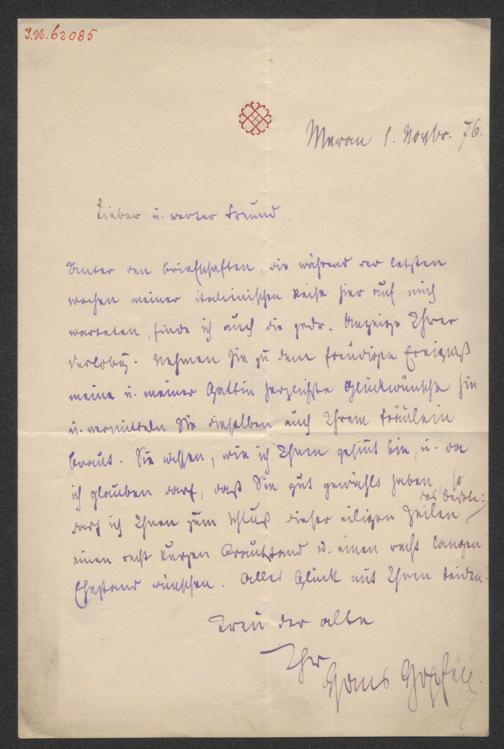 I.N. 62085
Meran 1. Novbr. 76.
Lieber u. werter Freund,
Unter den Briefschaften, die während der letzten
Wochen meiner italienischen Reise hier auf mich
warteten, finde ich auch die gedr. Anzeige Ihrer
Verlobg. Nehmen Sie zu dem freudigen Ereigniß
meine u. meiner Gattin herzlichste Glückwünsche hin
u. vermitteln Sie dieselben auch Ihrem Fräulein
Braut. Sie wissen, wie ich Ihnen gesinnt bin, u. da
ich glauben darf, daß Sie gut gewählt haben, so
darf ich Ihnen zum Schluß dieser eiligen Zeilen das Beste:
einen recht kurzen Brautstand u. einen recht langen
Ehestand wünschen. Alles Glück mit Ihnen beiden.
Treu der alte
Ihr
Hans Hopfen.